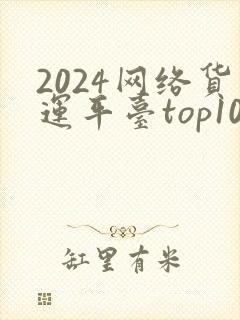 2024网络货
運平臺top10
缸里有米